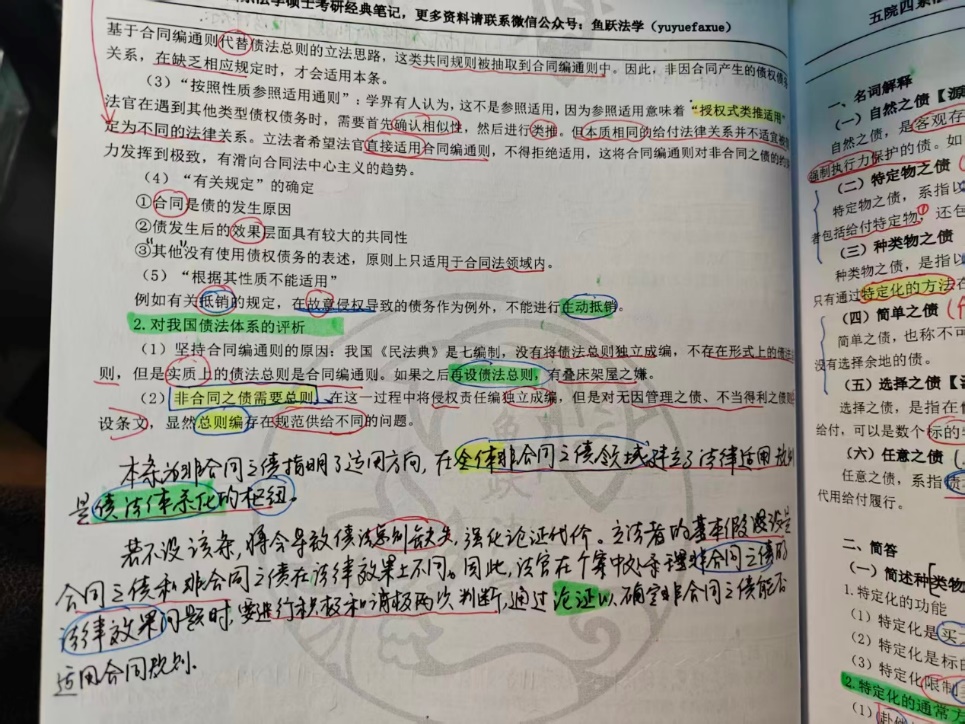 京法学硕士考研经典笔记，更多资料请联系微信公众号：鱼跃法学（yuyuefaxue）
基于合同编通则代替债法总则的立法思路，这类共同规则被抽取到合同编通则中。因此，非因合同产生的债权债务
关系，在缺乏相应规定时，才会适用本条。
（3）“按照性质参照适用通则”：学界有人认为，这不是参照适用，因为参照适用意味着“授权式类推适用”
法官在遇到其他类型债权债务时，需要首先确认相似性，然后进行类推。但本质相同的给付法律关系并不适宜被
定为不同的法律关系。立法者希望法官直接适用合同编通则，不得拒绝适用，这将合同编通则对非合同之债的
力发挥到极致，有滑向合同法中心主义的趋势。
（4）“有关规定”的确定
①合同是债的发生原因
②债发生后的效果层面具有较大的共同性
③"其他"没有使用债权债务的表述，原则上只适用于合同法领域内。
（5）“根据其性质不能适用”
例如有关抵销的规定，在故意侵权导致的债务作为例外，不能进行主动抵销。
2.对我国债法体系的评析
（1）坚持合同编通则的原因：我国《民法典》是七编制，没有将债法总则独立成编，不存在形式上的债法
则，但是实质上的债法总则是合同编通则。如果之后再设债法总则，有叠床架屋之嫌。
（2）非合同之债需要总则，在这一过程中将侵权责任编独立成编，但是对无因管理之债、不当得利之债则
设条文，显然总则编存在规范供给不同的问题。
本条为非合同之债指明了适用方向，在全体非合同之债领域建立了法律适用规则
是债法体系化的枢纽。
若不设该条，将会导致债法总则缺失，强化论证代价。立法者的基本假设是
合同之债和非合同之债在法律效果上不同。因此，法官在个案中处理非合同之债的
法律效果问题时，要进行积极和消极两次判断，通过论证以确定非合同之债能否
适用合同规则。
五院四系
一、名词解释
（一）自然之债【
自然之债，是客观存
强制执行力保护的债。如
（二）特定物之债
特定物之债，系指以
者包括给付特定物，还包
（三）种类物之债
种类物之债，是指以
只有通过特定化的方法在
（四）简单之债
简单之债，也称不可
没有选择余地的债。
（五）选择之债【
选择之债，是指在
给付，可以是数个标的
（六）任意之债
任意之债，系指债
代用给付履行。
二、简答
（一）简述种类物
1.特定化的功能
（1）特定化是买
（2）特定化是标的
（3）特定化限制
2.特定化的通常方
（1）赴偿